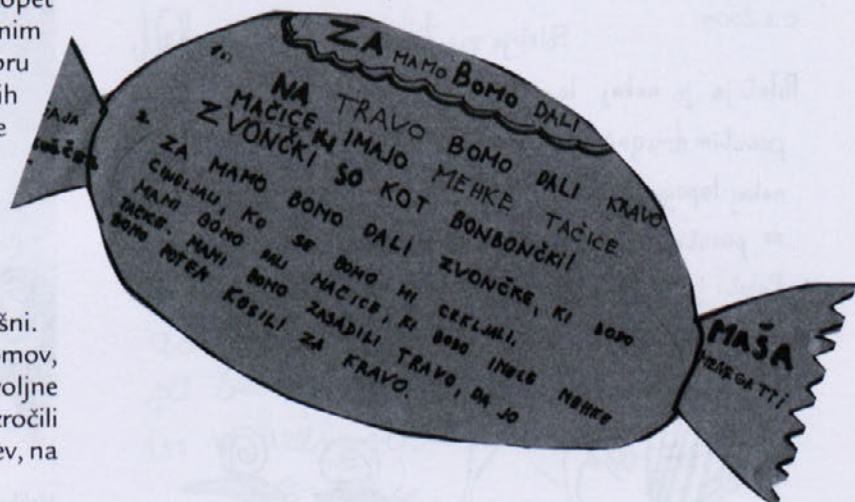 opet
nim
oru
ih
e
šni.
omov,
voljne
zročili
ev, na
ZA MAMO BOMO DALI
1.
NA TRAVO BOMO DALI KRAVO
MAČICE KI IMAJO MEHKE TAČICE
ZVONČKI SO KOT BONBONČKI!
2.
ZA MAMO BOMO DALI ZVONČKE, KI BODO
CINGLJALI, KO SE BOMO MI CRKLJALI.
MAMI BOMO DALI MAČICE, KI BODO IMELE MEHKE
TAČKE. MAMI BOMO ZASADILI TRAVO, DA JO
BOMO POTEM KOSILI ZA KRAVO.
MAŠA
MENEGATTI